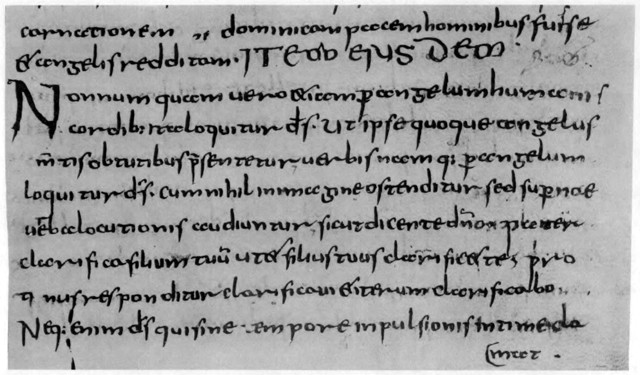 carnationem dominicam pacem hominibus fuisse
& angelis redditam· ITEM EJUS DEM
Nonnumquam uero &iam p angelum humanis
cordib; ita loquitur ds̄. Ut ipse quoque angelus
m̄tis obtutibus p̄sentetur uerbis namq; p angelum
loquitur ds̄. cum nihil in imagine ostenditur sed supernae
uerba locutionis audiuntur, sicut dicente dn̄o pater
clarifica filium tuū ut & filius tuus clarificet te, pro
tinus respondetur clarificaui & iterum clarificabo.
Neq; enim ds̄ qui sine tempore inpulsionis intime cla
mat.